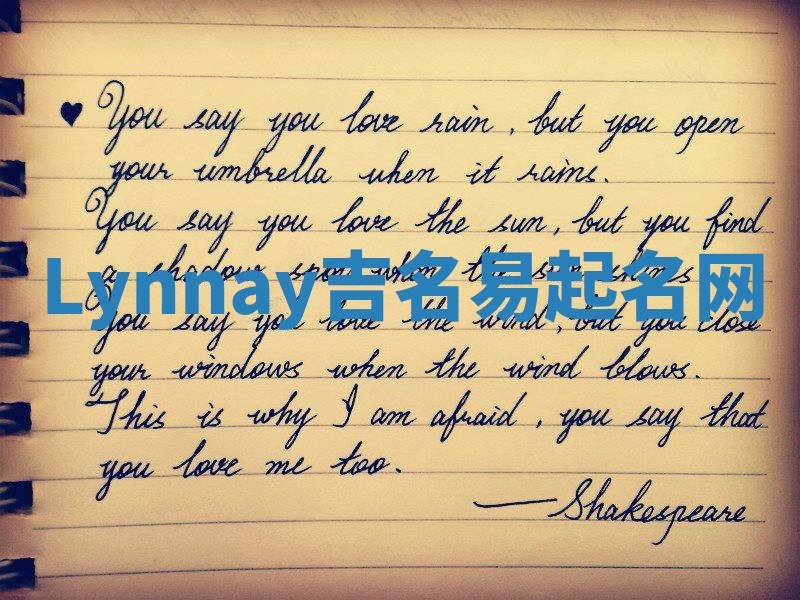 ♥ You say you love rain, but you open
your umbrella when it rains.
You say you love the sun, but you find
a shadow spot when the sun shines
Lynnay吉名易起名网
You say you love the wind, but you close
your windows when the wind blows.
This is why I am afraid, you say that
you love me too.
—Shakespeare